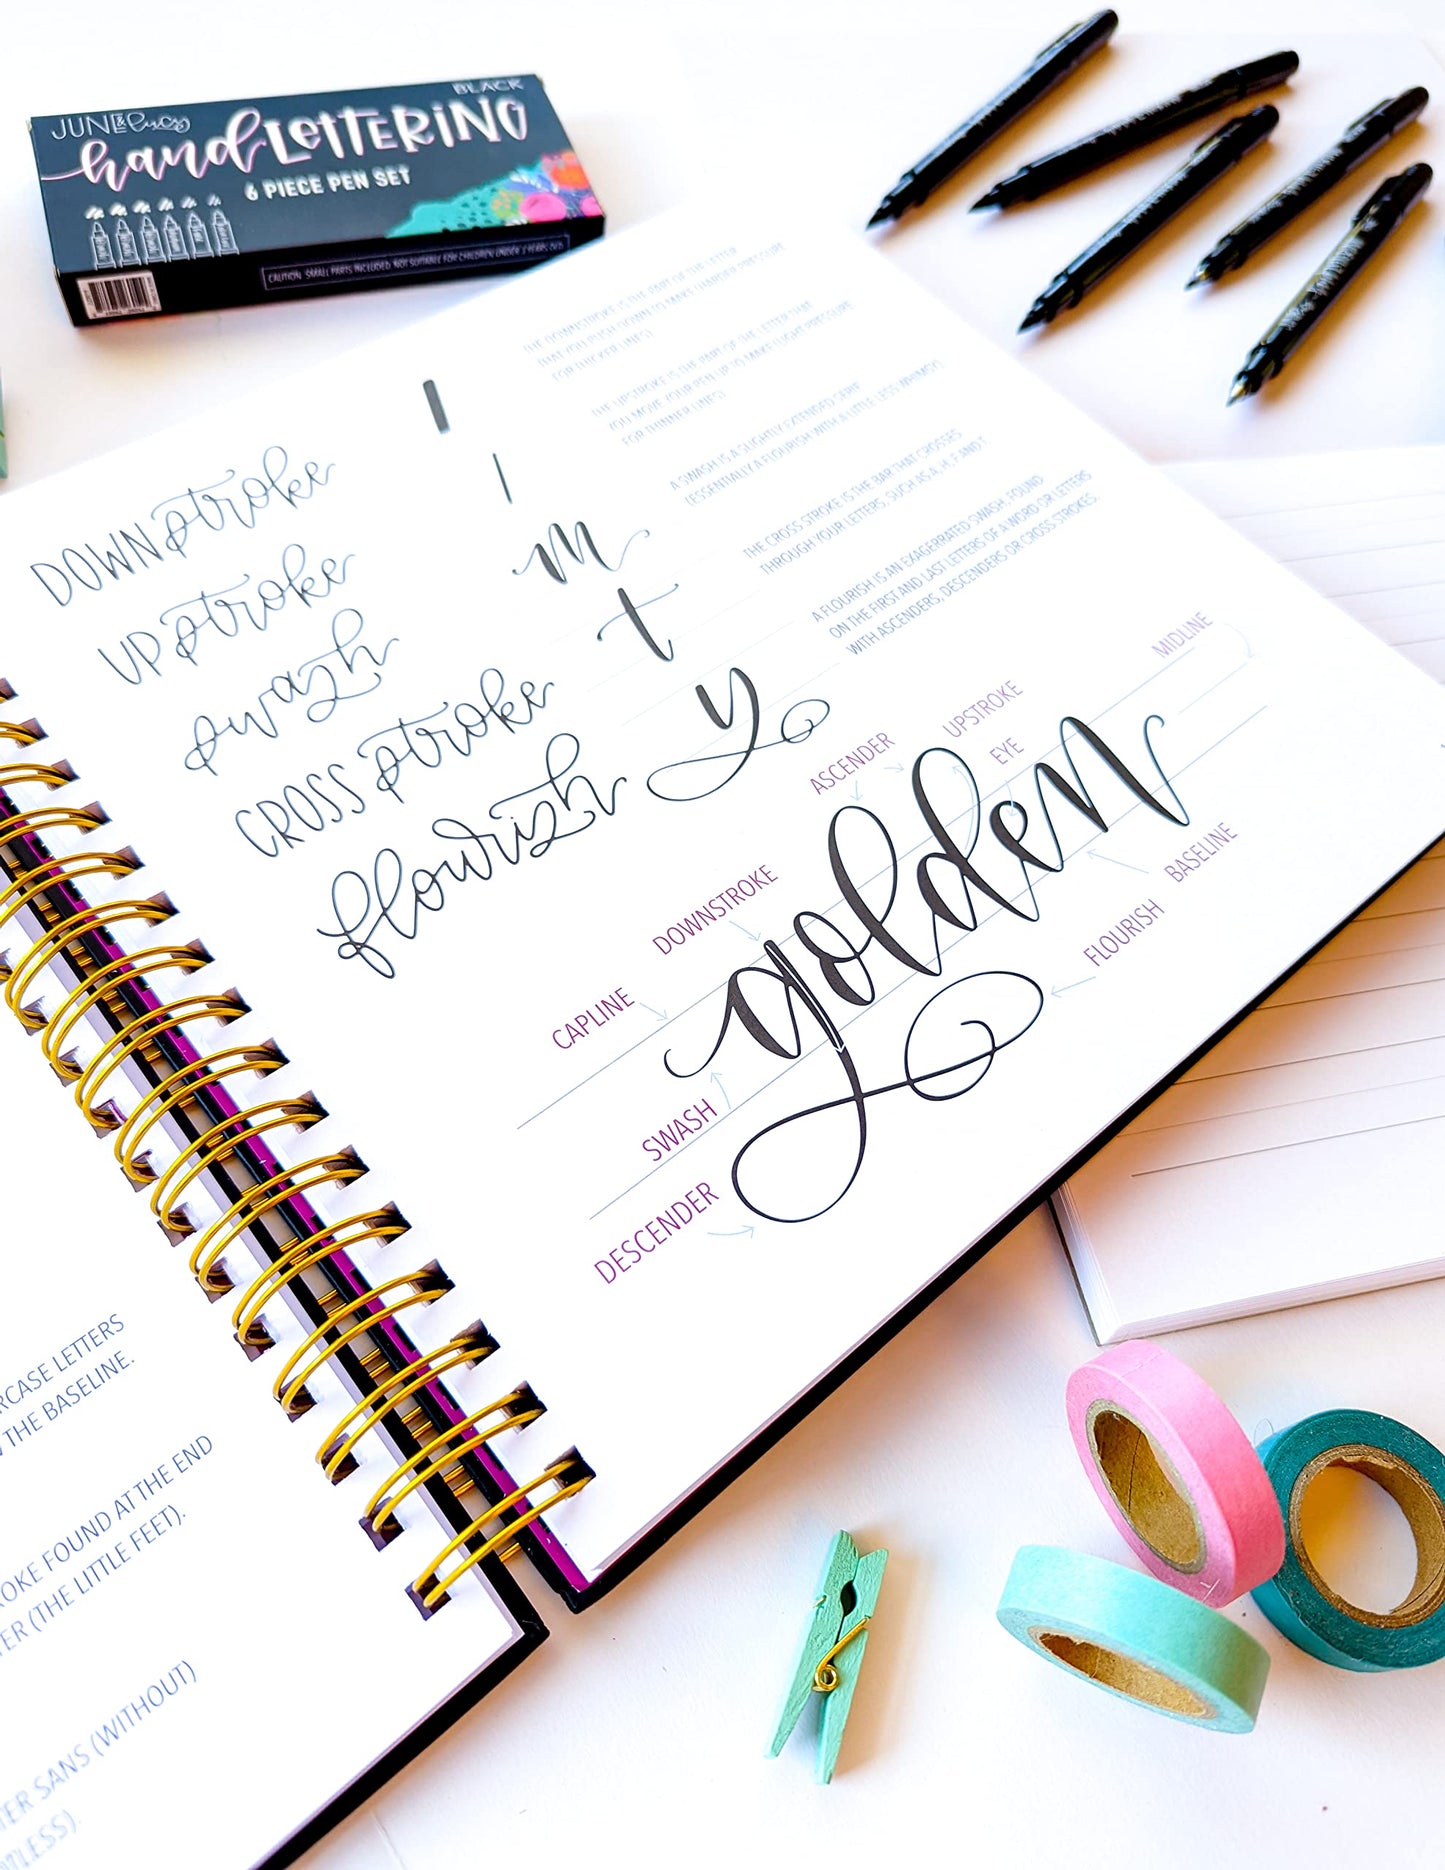 BLACK
JUNE & lucy
hand LETTERING
6 PIECE PEN SET
CAUTION: SMALL PARTS INCLUDED. NOT SUITABLE FOR CHILDREN UNDER 3 YEARS OLD.
DOWNstroke
THE DOWNSTROKE IS THE PART OF THE LETTER
THAT YOU PUSH DOWN TO MAKE (HARDER PRESSURE
FOR THICKER LINES).
UPstroke
THE UPSTROKE IS THE PART OF THE LETTER THAT
YOU MOVE YOUR PEN UP TO MAKE (LIGHT PRESSURE
FOR THINNER LINES).
swash
m
A SWASH IS A SLIGHTLY EXTENDED SERIF
(ESSENTIALLY A FLOURISH WITH A LITTLE LESS WHIMSY).
CROSS stroke
t
THE CROSS STROKE IS THE BAR THAT CROSSES
THROUGH YOUR LETTERS, SUCH AS A, H, F AND T.
flourish
y
A FLOURISH IS AN EXAGERRATED SWASH, FOUND
ON THE FIRST AND LAST LETTERS OF A WORD OR LETTERS
WITH ASCENDERS, DESCENDERS OR CROSS STROKES.
MIDLINE
UPSTROKE
ASCENDER
EYE
DOWNSTROKE
CAPLINE
golden
BASELINE
FLOURISH
SWASH
DESCENDER
RCASE LETTERS
THE BASELINE.
OKE FOUND AT THE END
TER (THE LITTLE FEET).
TER SANS (WITHOUT)